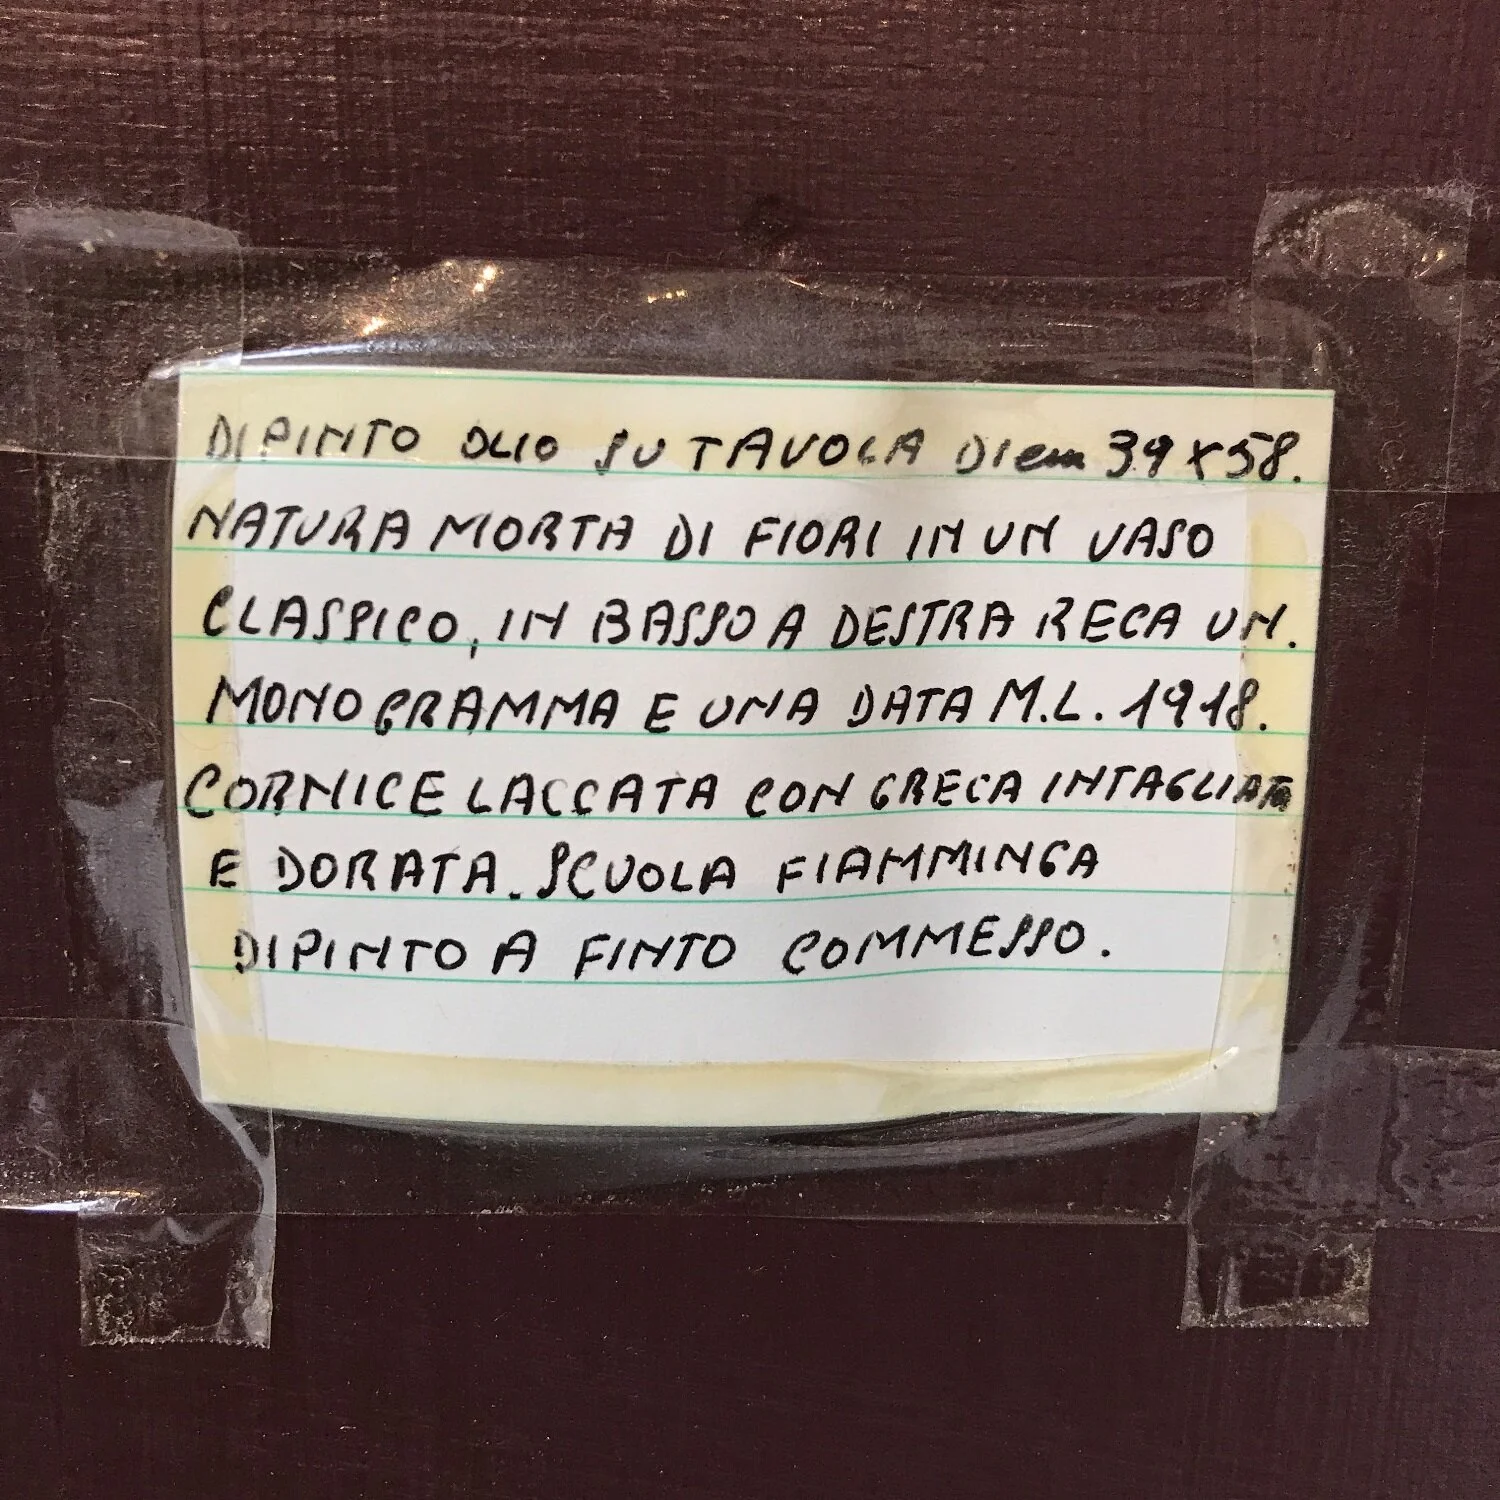 DIPINTO OLIO SU TAVOLA DI cm 39 X 58.
NATURA MORTA DI FIORI IN UN VASO
CLASSICO, IN BASSO A DESTRA RECA UN.
MONOGRAMMA E UNA DATA M.L. 1918.
CORNICE LACCATA CON GRECA INTAGLIATA
E DORATA. SCUOLA FIAMMINGA
DIPINTO A FINTO COMMESSO.